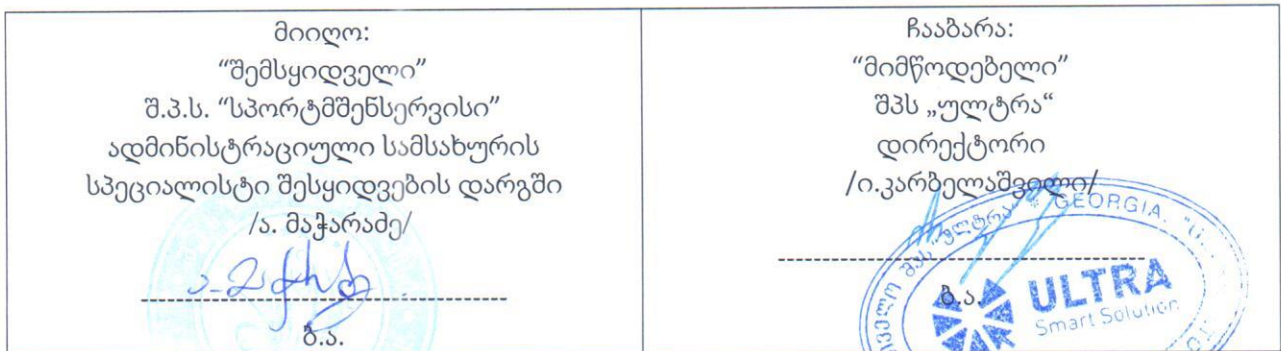 მიიღო:
“შემსყიდველი”
შ.პ.ს. “სპორტმშენსერვისი”
ადმინისტრაციული სამსახურის
სპეციალისტი შესყიდვების დარგში
/ა. მაჭარაძე/
ბ.ა.
ჩააბარა:
“მიმწოდებელი”
შპს „ულტრა“
დირექტორი
/ი.კარბელაშვილი/
ბ.ა.
შპს "ულტრა" * GEORGIA.
ULTRA
Smart Solution